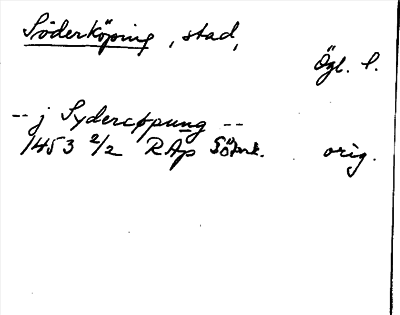 Söderköping, stad,
Ögl. S.
-- j Sydercøpung --
1453 2/2 RAp Sömk. orig.